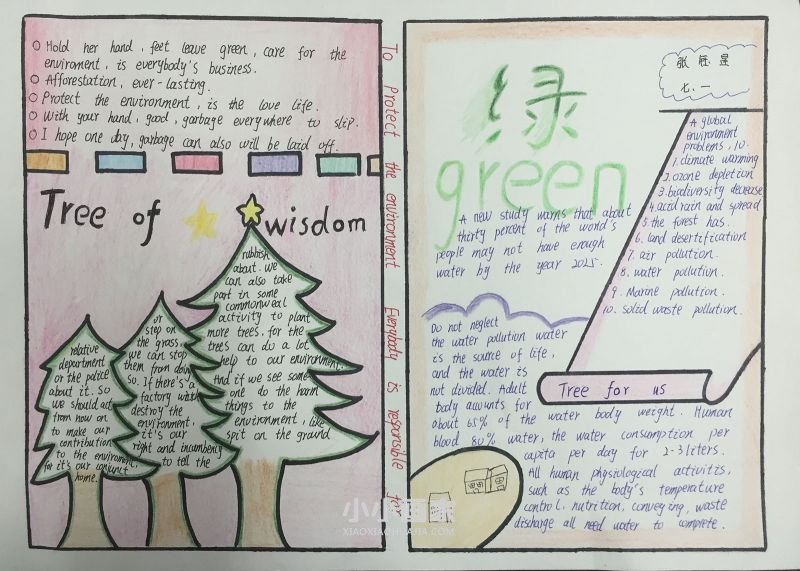 Hold her hand, feet leave green, care for the
enviroment, is everybody's business.
Afforestation, ever-lasting.
Protect the environment, is the love life.
With your hand, good, garbage everywhere to slip.
I hope one day, garbage can also will be laid off.
Tree of wisdom
rubbish
about. we
can also take
part in some
commonweal
activity to plant
more trees. for the
trees can do a lot
help to our environment.
And if we see some
one do the harm
things to the
environment, like
spit on the ground
or
step on
the grass.
we can stop
them from doing
so. If there's a
factory with
destroy the
environment,
it's our
right and incumbency
to tell the
relative
department
or the police
about it. So
we should act
from now on
to make our
contribution
to the environment,
for it's our conjunct
home.
To protect the environment Everybody is responsible for
绿
green
七.一
A new study warns that about
thirty percent of the world's
people may not have enough
water by the year 2025.
A global
environment
problems, 10.
1. climate warming
2. ozone depletion
3. biodiversity decrease
4. acid rain and spread
5. the forest has.
6. land desertification
7. air pollution.
8. water pollution.
9. Marine pollution.
10. solid waste pollution.
Tree for us
Do not neglect
the water pollution water
is the source of life,
and the water is
not divided. Adult
body amounts for
about 65% of the water body weight. Human
blood 80% water, the water consumption per
capita per day for 2-3 liters.
All human physiological activitis,
such as the body's temperature
control, nutrition, conveying, waste
discharge all need water to complete.
小小画家
XIAOXIAOHUAJIA.COM